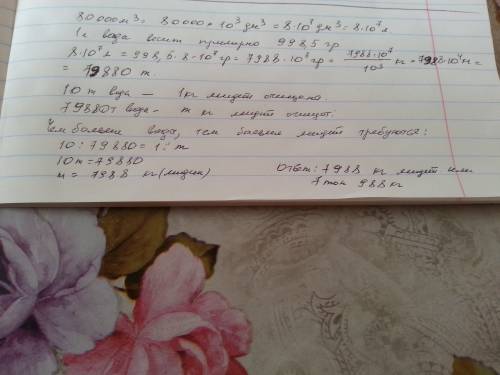 80000м³ = 80000 · 10³ дм³ = 8·10⁷ дм³ = 8·10⁷ л
1л вода весит примерно 998,5 гр
8·10⁷ л = 998,5 · 8·10⁷ гр = 7988·10⁷ гр = 7988·10⁷/10³ кг = 7988·10⁴ кг =
= 79880 т.
10 т вода — 1кг мидий очищают.
79880т вода - m кг мидий очищают.
Чем больше вода, тем больше мидий требуются:
10 : 79880 = 1 : m
10m = 79880
m = 7988 кг (мидии)
Ответ: 7988 кг мидий или
7 тон 988 кг